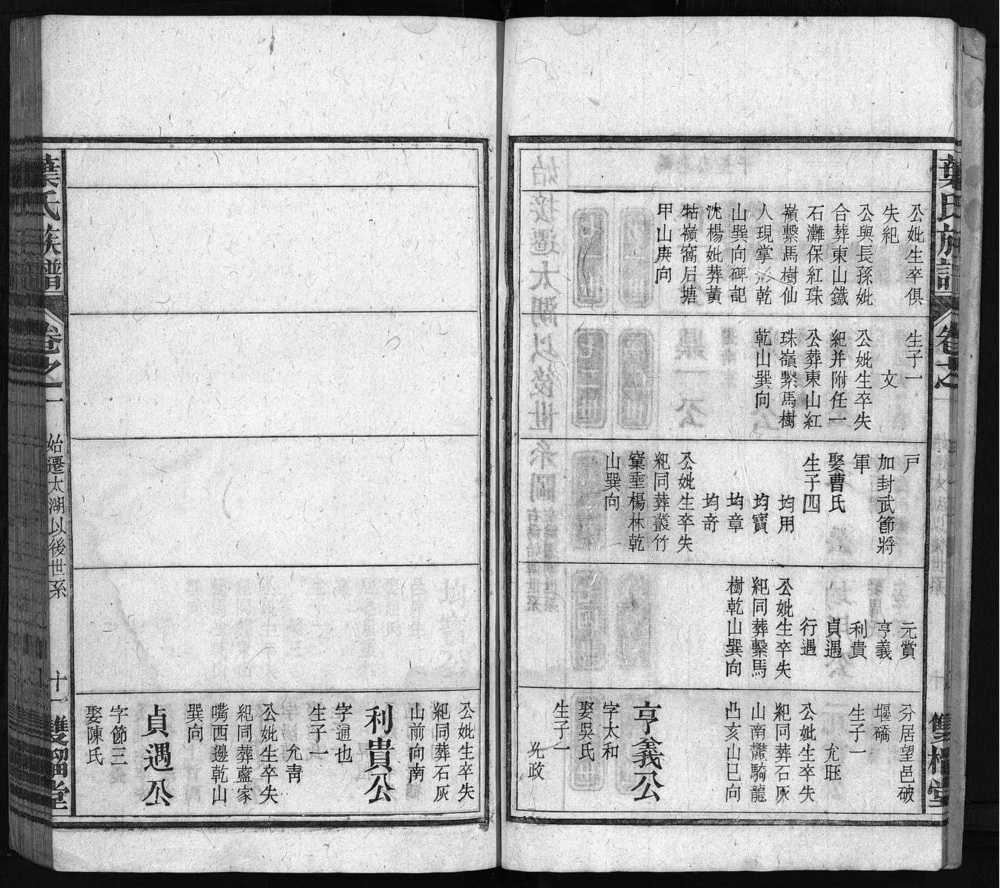 葉氏族譜
卷之一
雙桂堂
公妣生卒俱
失紀
公與長孫妣
合葬東山鐵
石灘保紅珠
嶺繫馬樹仙
人現掌形乾
山巽向碑記
沈楊妣葬黃
牯嶺窩后塘
甲山庚向
生子一
文
公妣生卒失
紀并附任一
公葬東山紅
珠嶺繫馬樹
乾山巽向
戸
加封武節將
軍
娶曹氏
生子四
均用
均寶
均章
均奇
公妣生卒失
紀同葬叢竹
窠垂楊林乾
山巽向
元賞
亨義
利貴
貞遇
行遇
公妣生卒失
紀同葬繫馬
樹乾山巽向
分居望邑破
堰礄
生子一
允旺
公妣生卒失
紀同葬石灰
山南黨騎龍
凸亥山巳向
亨義公
字太和
娶吳氏
生子一
光政
公妣生卒失
紀同葬石灰
山前向南
利貴公
字通也
生子一
允靑
公妣生卒失
紀同葬蘆家
嘴西邊乾山
巽向
貞遇公
字節三
娶陳氏
葉氏族譜
卷之一
始遷太湖以後世系
十一
雙桂堂